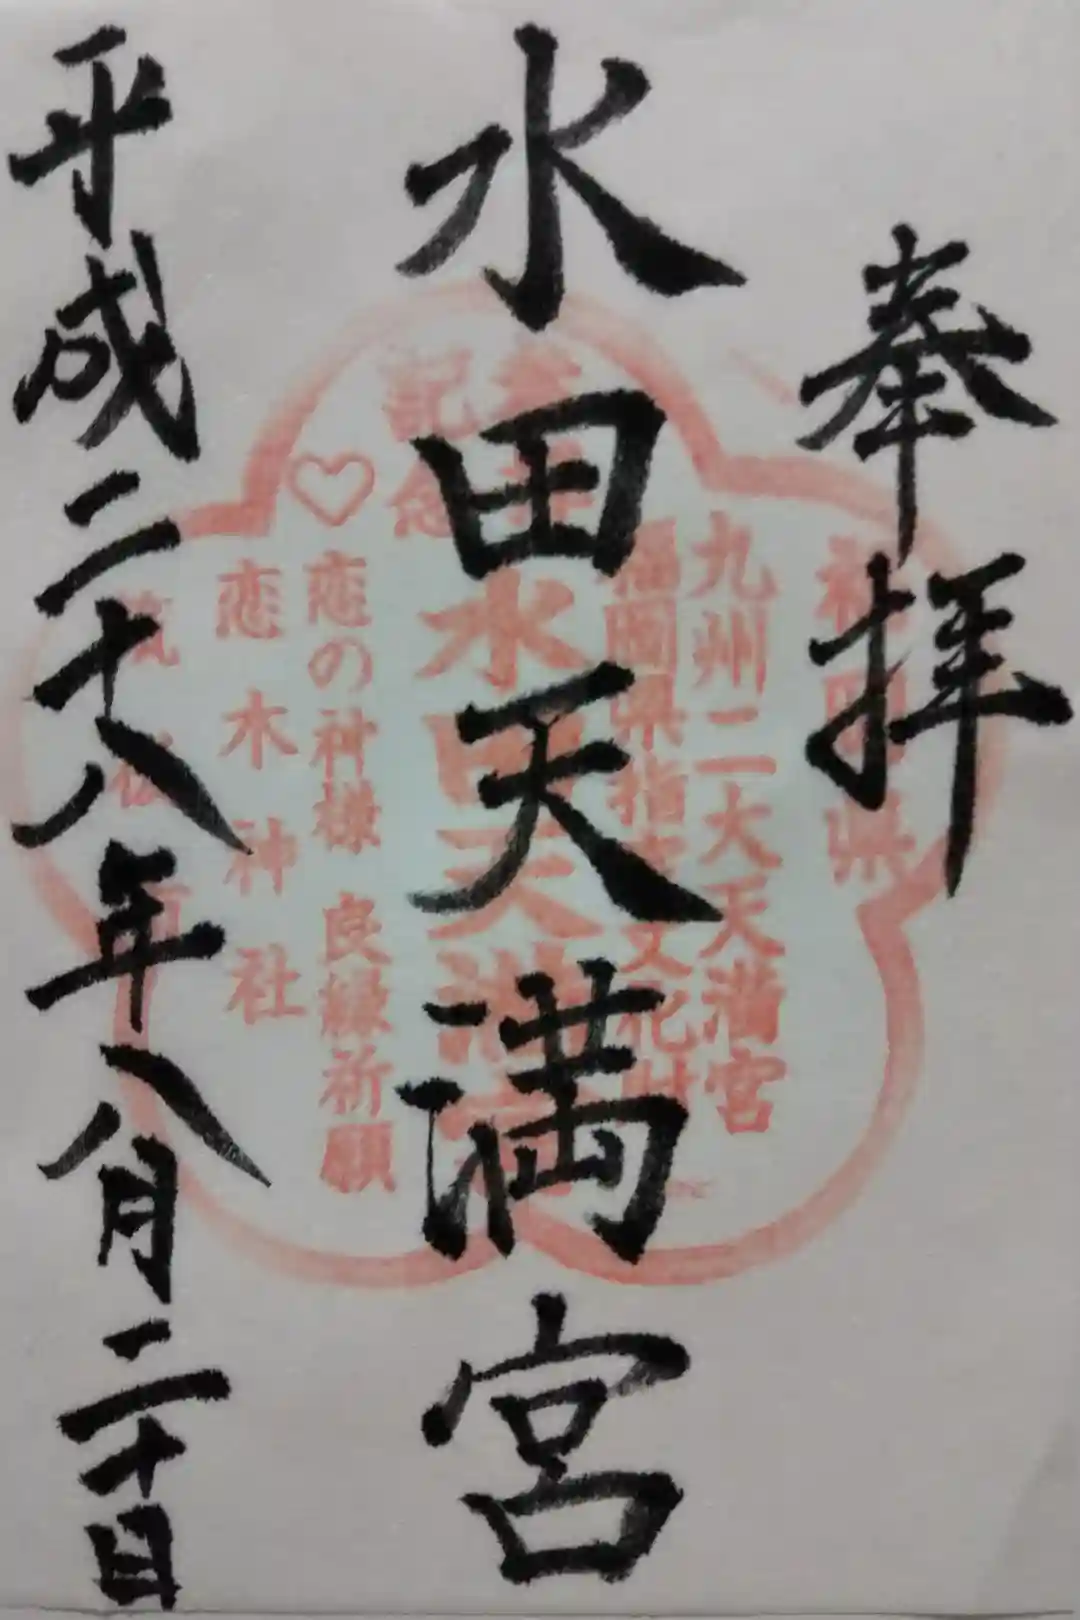 奉拝
水田天満宮
平成二十八年八月二十日
福岡県
九州二大天満宮
福岡県指定文化財
参拝
記念
水田天満宮
恋の神様 良縁祈願
恋木神社
筑後市